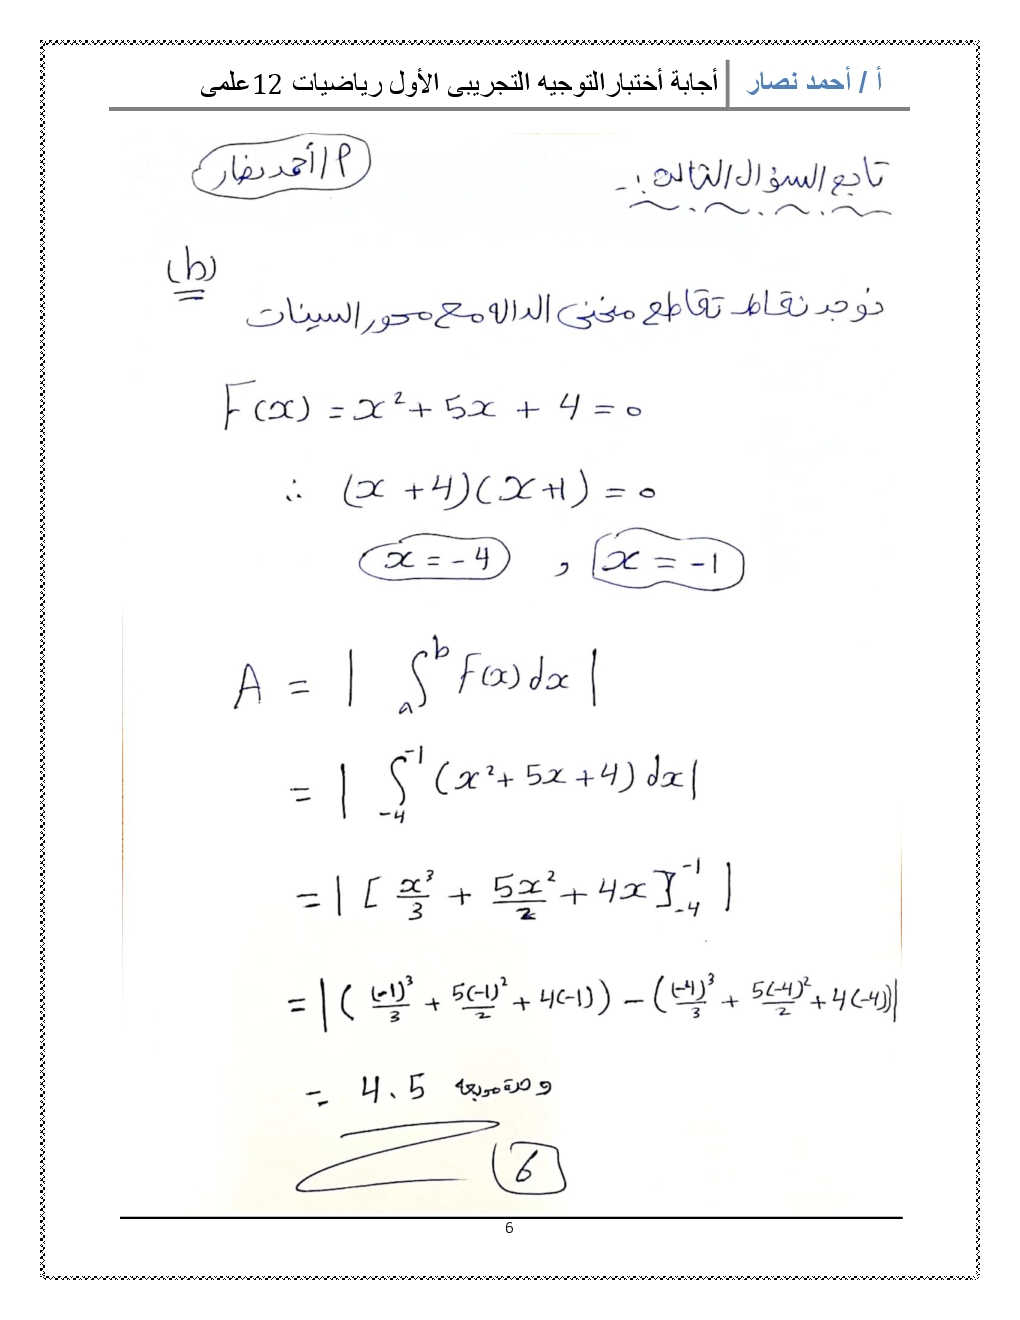 أ / أحمد نصار أجابة أختبار التوجيه التجريبى الأول رياضيات 12 علمى
م/أحمد نصار
تابع السؤال الثالث :-
(b)
نوجد نقاط تقاطع منحنى الداله مع محور السينات
F(x) = x² + 5x + 4 = 0
∴ (x + 4)(x + 1) = 0
x = -4 , x = -1
A = | ∫ₐᵇ F(x) dx |
= | ∫₋₄⁻¹ (x² + 5x + 4) dx |
= | [ x³/3 + 5x²/2 + 4x ]₋₄⁻¹ |
= | ( (-1)³/3 + 5(-1)²/2 + 4(-1) ) - ( (-4)³/3 + 5(-4)²/2 + 4(-4) ) |
= 4.5 وحدة مربعه
6
6